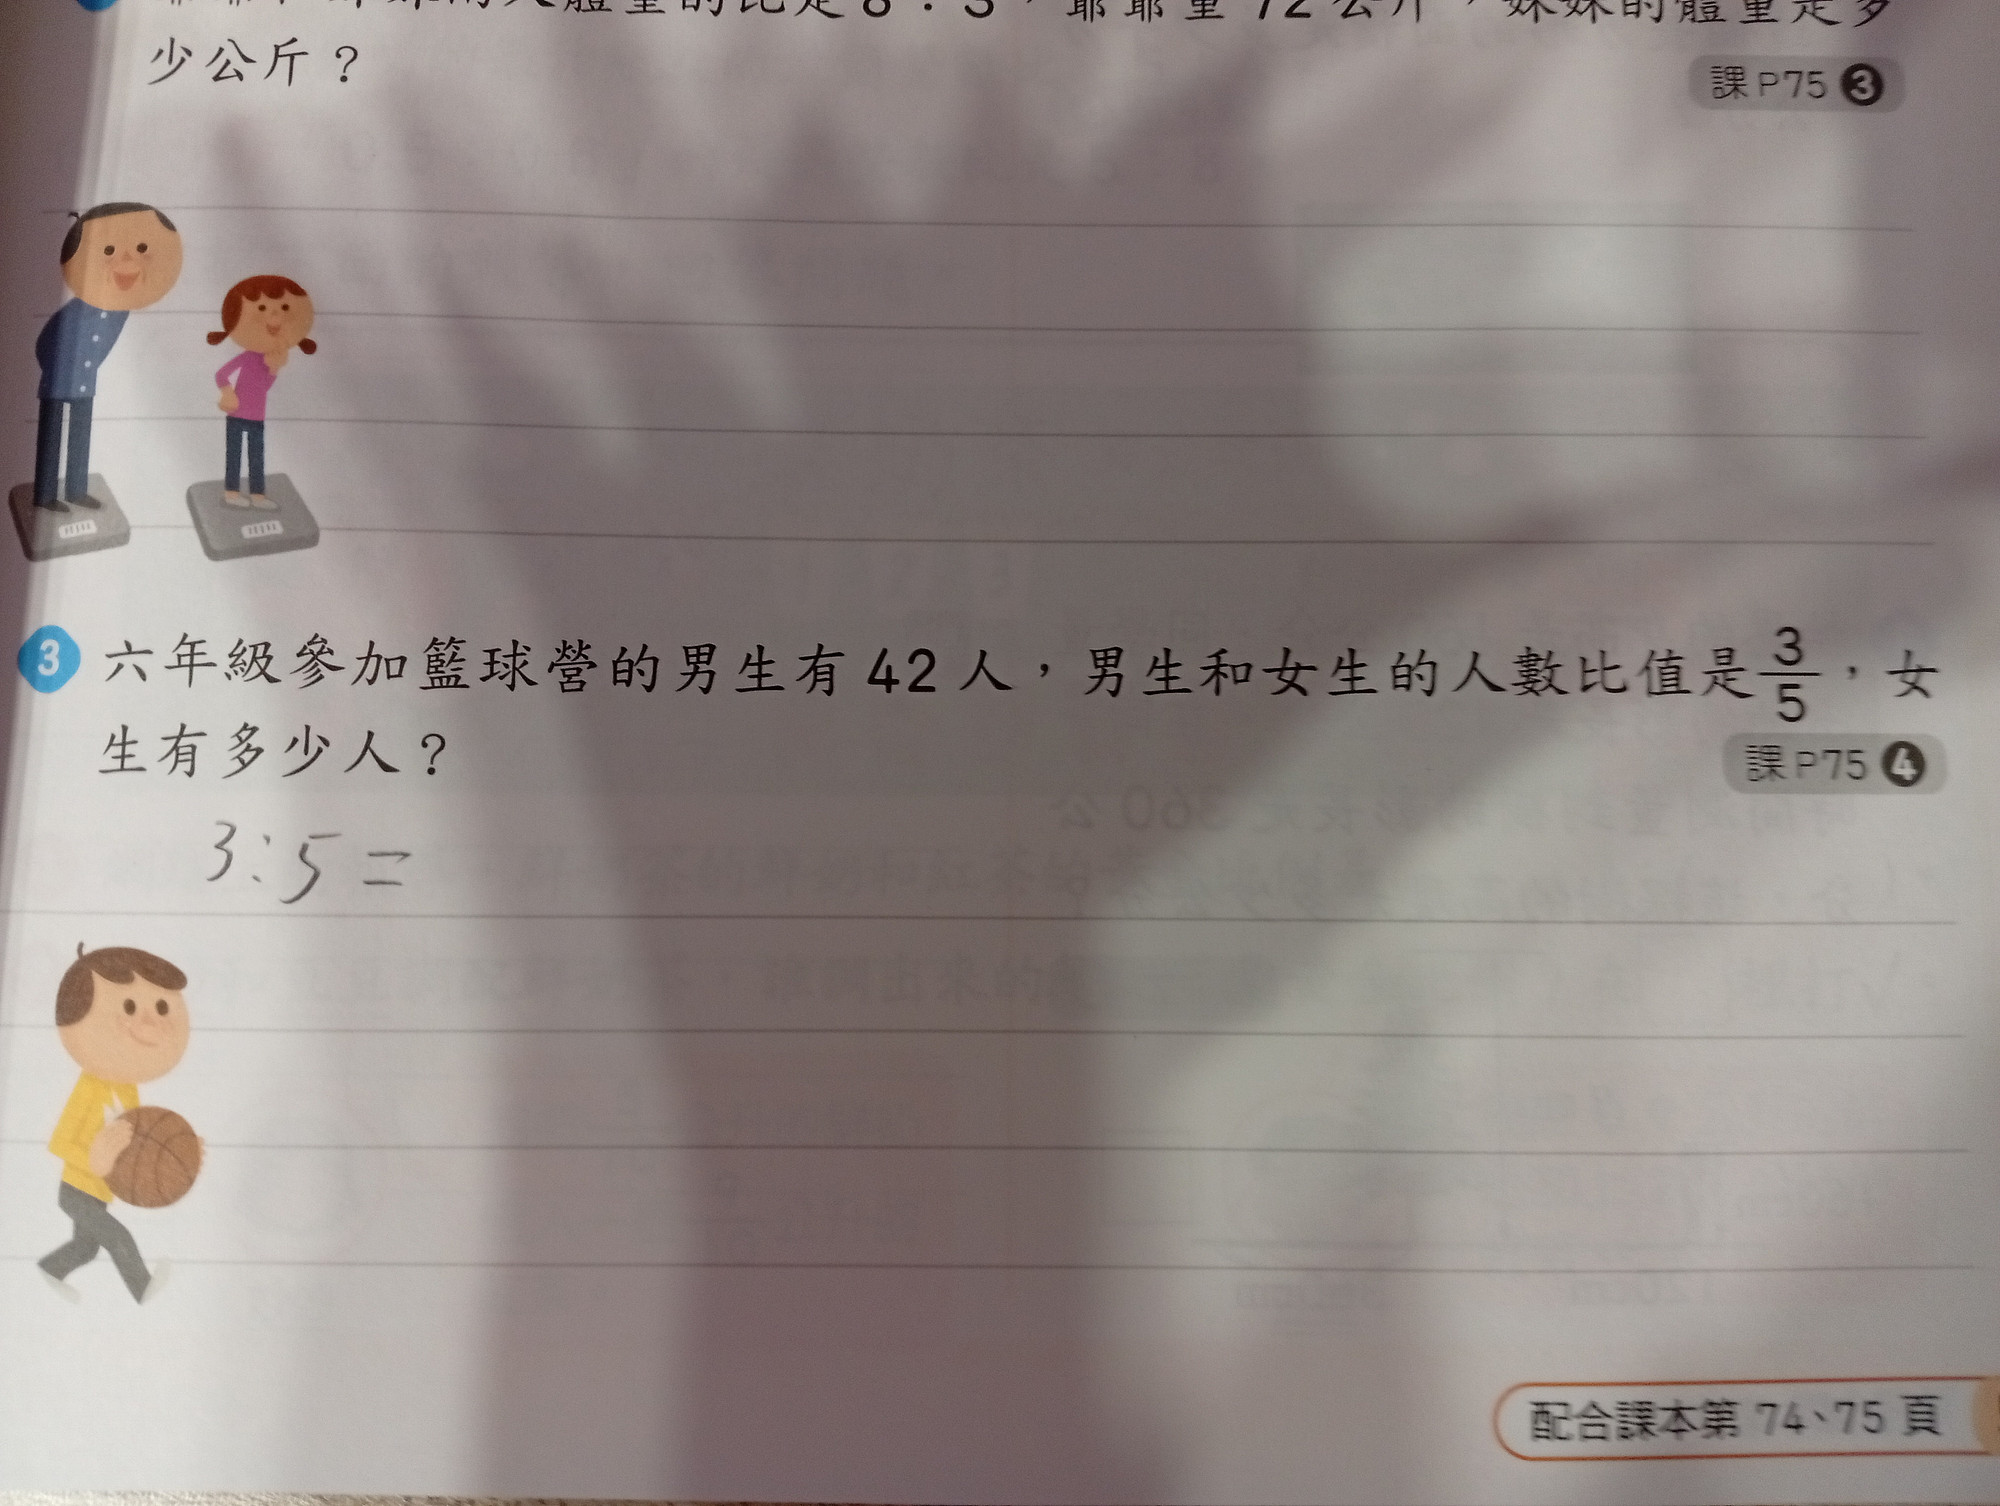 體重的比是8:3，爺爺重72公斤，妹妹的體重是多
少公斤？
課P75 3
3 六年級參加籃球營的男生有42人，男生和女生的人數比值是3/5，女
生有多少人？
課P75 4
3:5=
配合課本第74、75頁